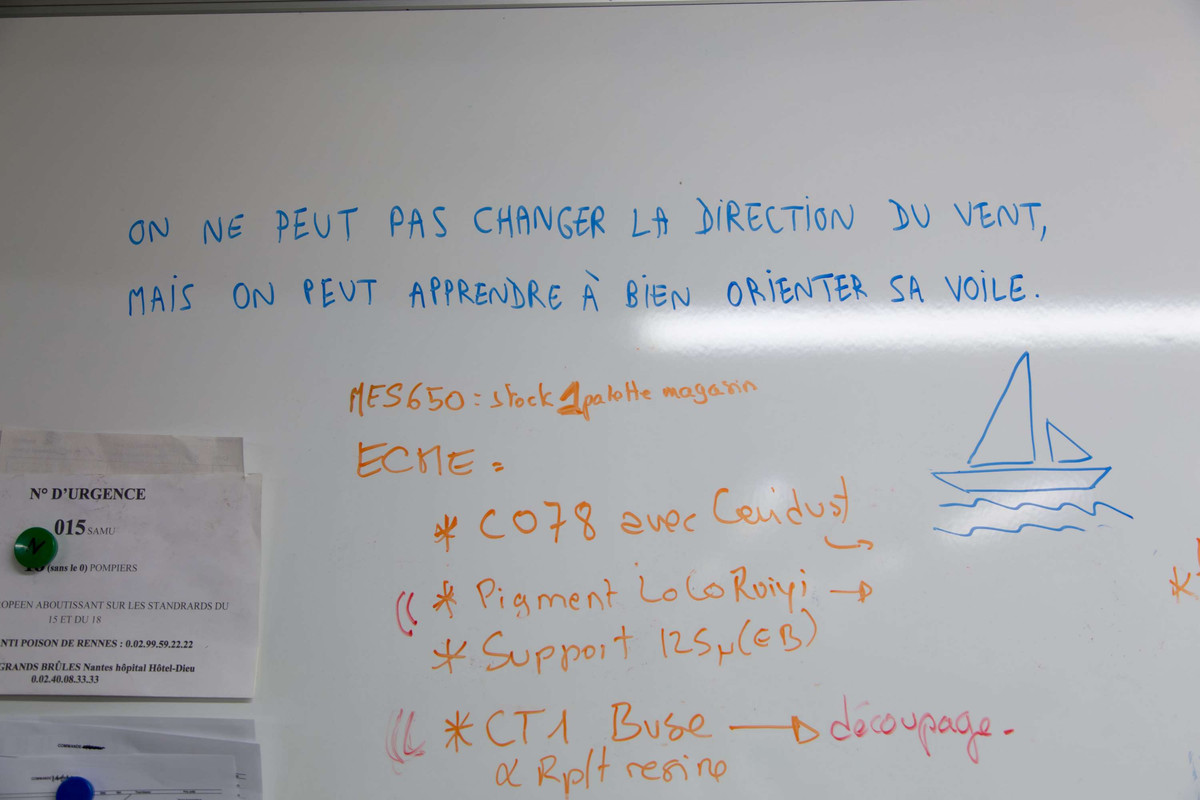 ON NE PEUT PAS CHANGER LA DIRECTION DU VENT,
MAIS ON PEUT APPRENDRE À BIEN ORIENTER SA VOILE.
MES650 : stock 1 palette magasin
ECME =
* C078 avec
(( * Pigment
* Support 125µ (EB)
(( * CT1 Buse → découpage.
resine
*
N° D'URGENCE
015 SAMU
(sans le 0) POMPIERS
OPEEN ABOUTISSANT SUR LES STANDRARDS DU
15 ET DU 18
NTI POISON DE RENNES : 0.02.99.59.22.22
GRANDS BRÛLES Nantes hôpital Hôtel-Dieu
0.02.40.08.33.33
N